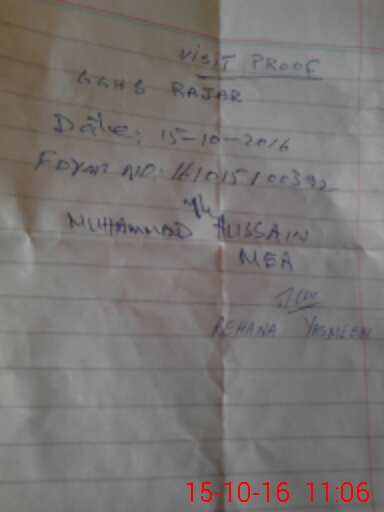 VISIT PROOF
GGHS RAJAR
Date: 15-10-2016
Foyam NO: 161015100392
MUHAMMAD HUSSAIN
MEA
REHANA YASMEEN
15-10-16 11:06